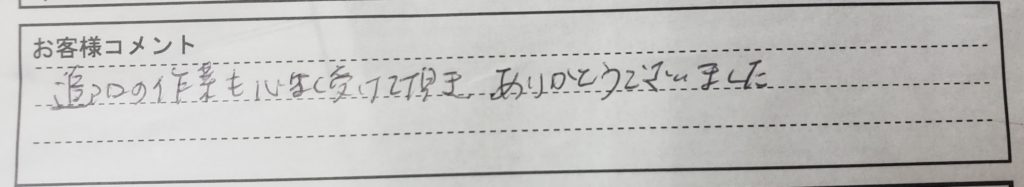 お客様コメント
追加の作業も心よく受けて頂き、ありがとうございました